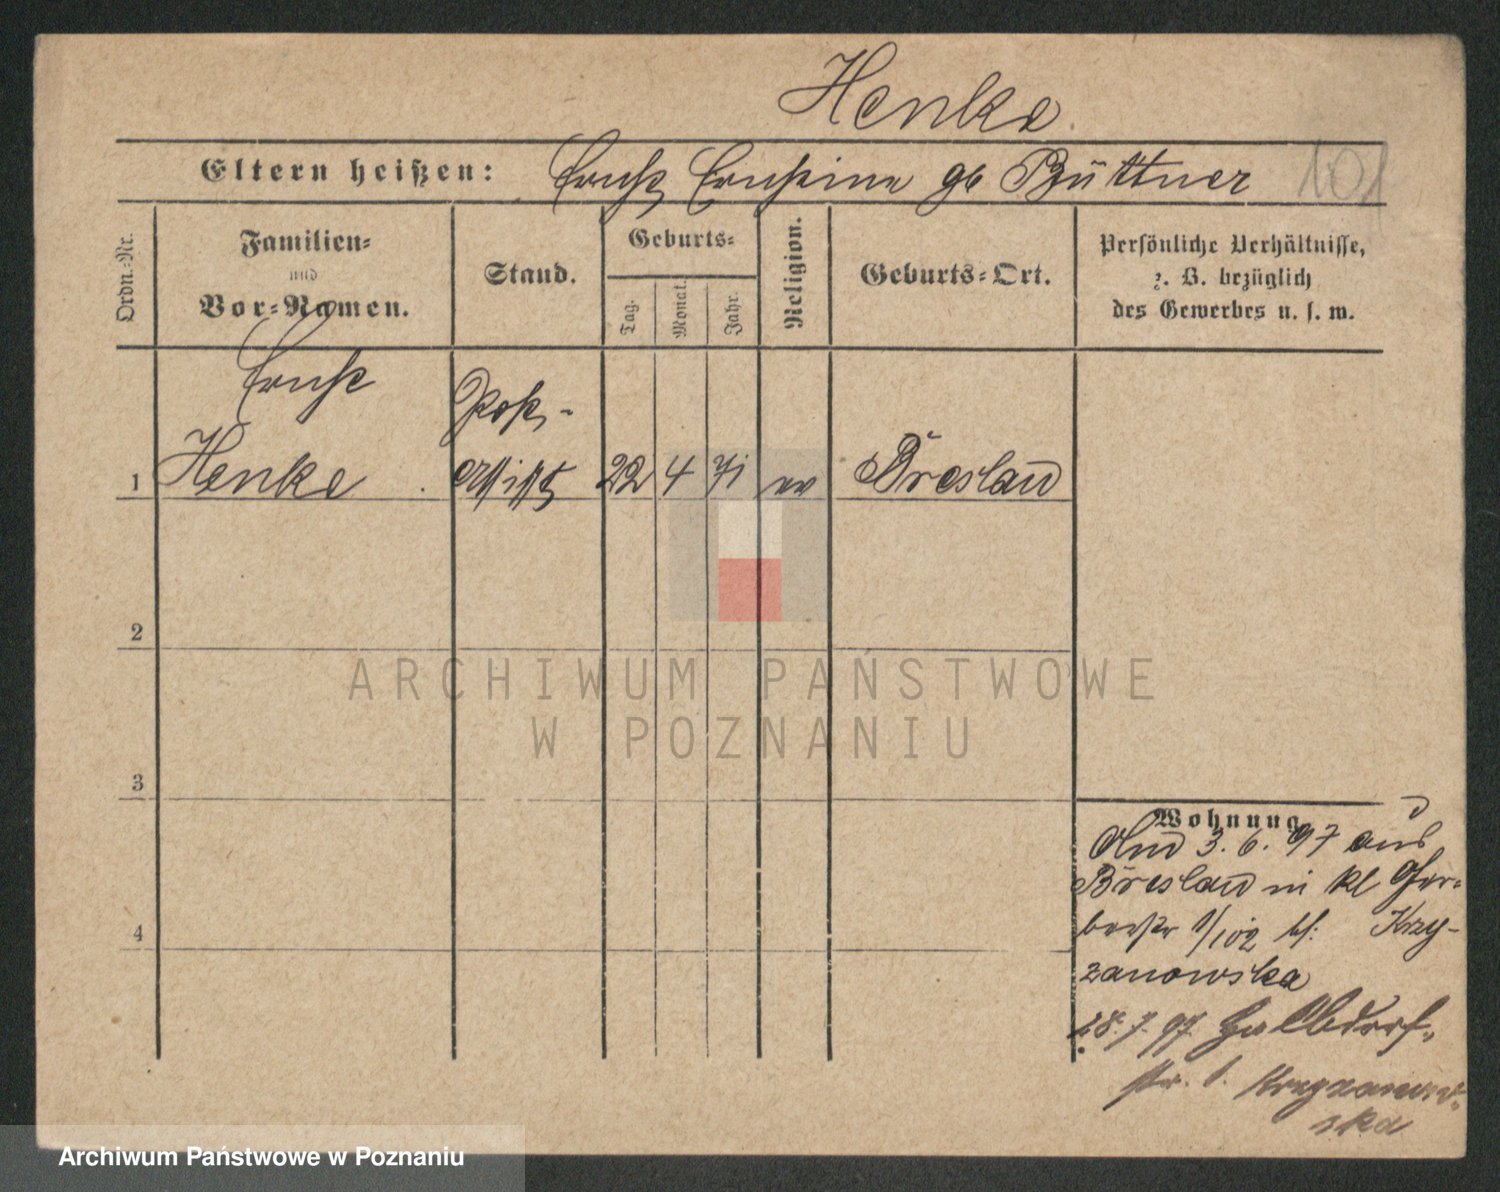 Henke
Eltern heißen: Ernst, Ernstine gb Büttner
101
Ordn.-Nr.
Familien-
und
Vor-Namen.
Stand.
Geburts-
Tag.
Monat.
Jahr.
Religion.
Geburts-Ort.
Persönliche Verhältnisse,
z. B. bezüglich
des Gewerbes u. s. w.
Ernst
Henke
Post-
assist
1
22
4
71
ev
Breslau
2
3
4
Wohnung
3. 6. 97 aus
Breslau in kl Ger-
berstr 1/102 bei Krzy-
zanowska
28. 7. 97 Halbdorf-
str. Krzyzanow-
ska
ARCHIWUM PAŃSTWOWE
W POZNANIU
Archiwum Państwowe w Poznaniu